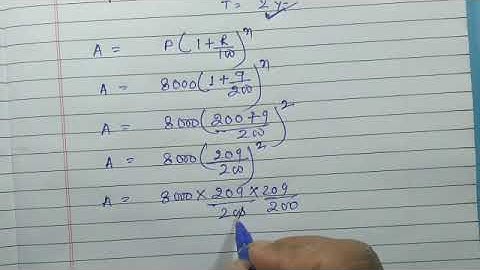 T = 2 y
A = P(1+R/100)^n
A = 8000(1+9/200)^n
A = 8000(200+9/200)^2
A = 8000(209/200)^2
A = 8000 × 209/200 × 209/200